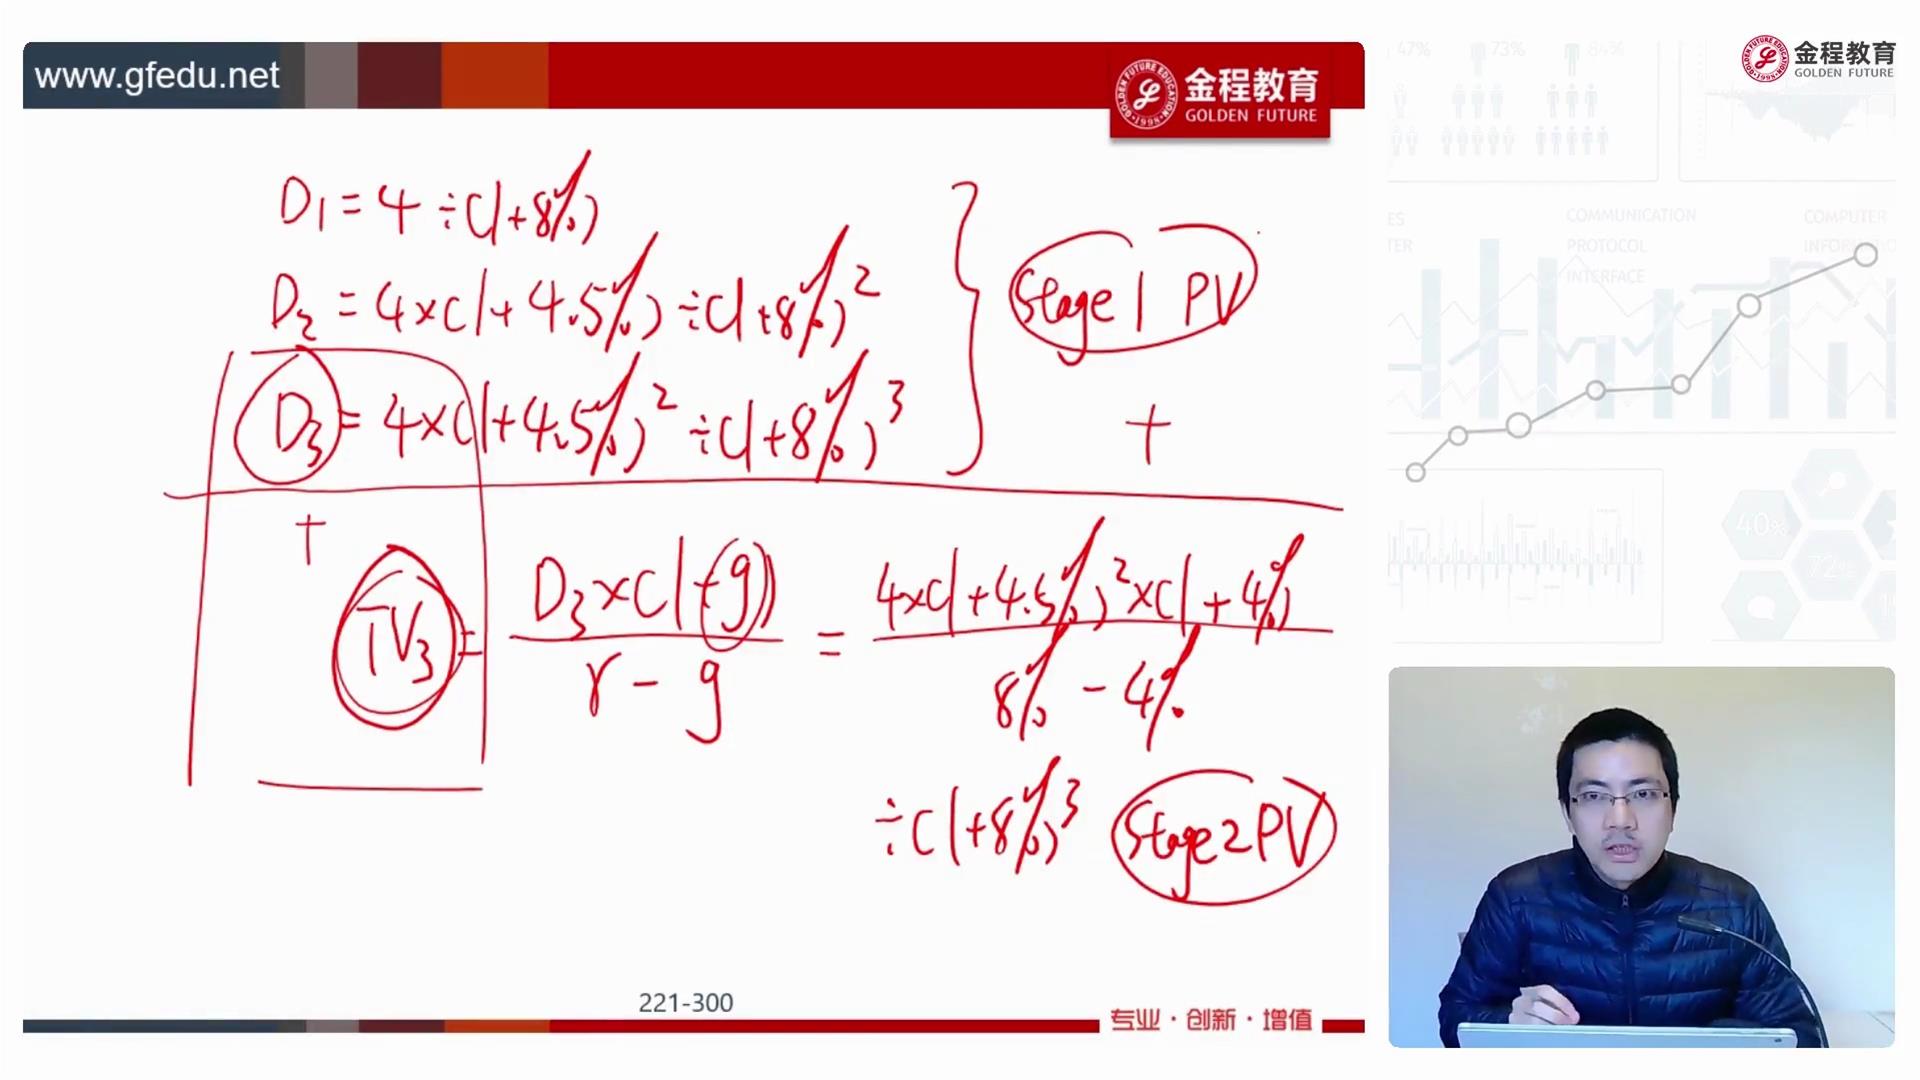 www.gfedu.net
金程教育
GOLDEN FUTURE
金程教育
GOLDEN FUTURE
47%
73%
84%
D1 = 4 ÷(1+8%)
D2 = 4×(1+4.5%) ÷(1+8%)²
D3 = 4×(1+4.5%)² ÷(1+8%)³
Stage 1 PV
+
+
TV3 = D3×(1+g) / r-g = 4×(1+4.5%)²×(1+4%) / 8%-4%
÷(1+8%)³
Stage 2 PV
COMMUNICATION
PROTOCOL
INTERFACE
COMPUTER
40%
72%
221-300
专业·创新·增值